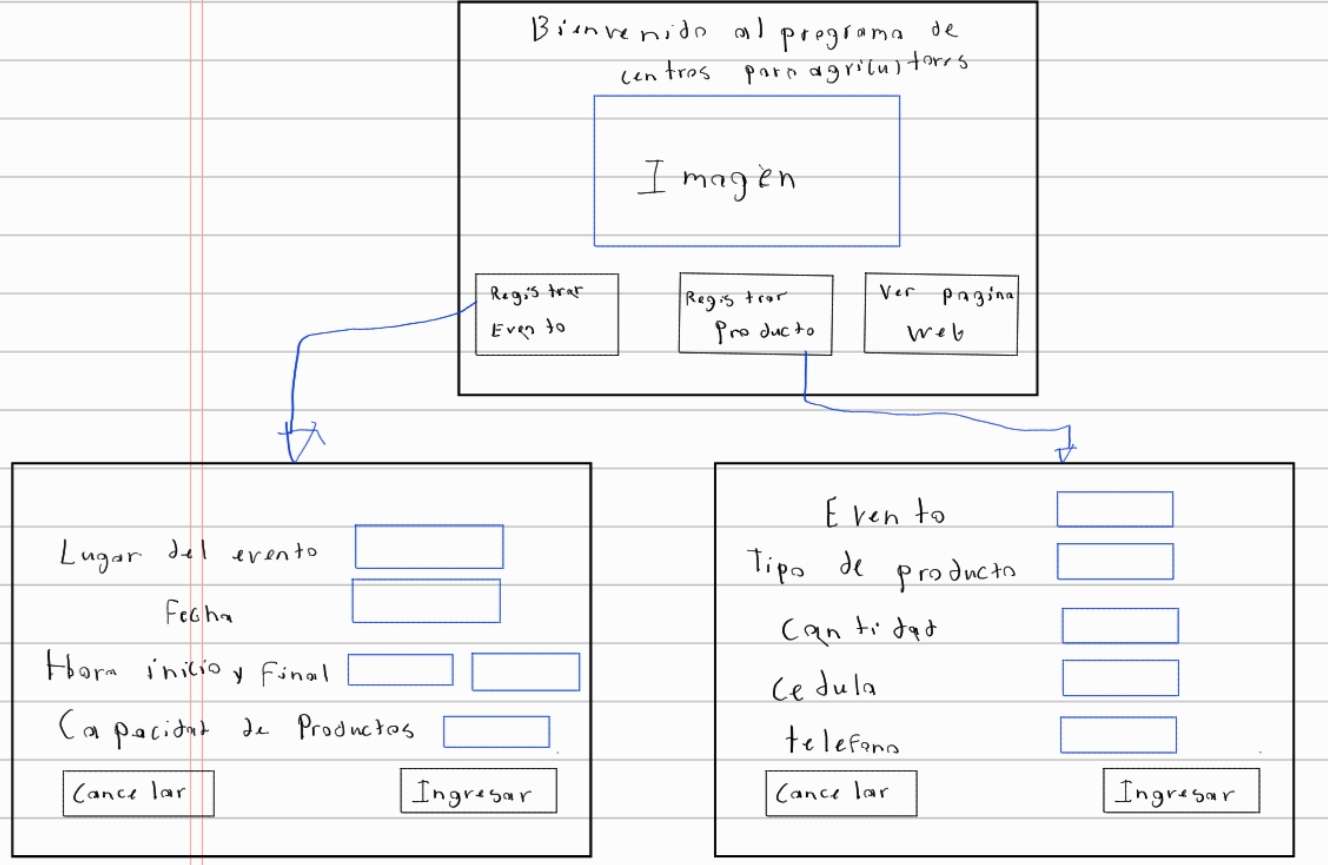 Bienvenido al programa de
centros para agricultores
Imagèn
Registrar
Evento
Registrar
Producto
Ver pagina
web
Lugar del evento
Fecha
Hora inicio y Final
Capacidat de Productos
Cancelar
Ingresar
Evento
Tipo de producto
Cantidad
Cedula
telefono
Cancelar
Ingresar